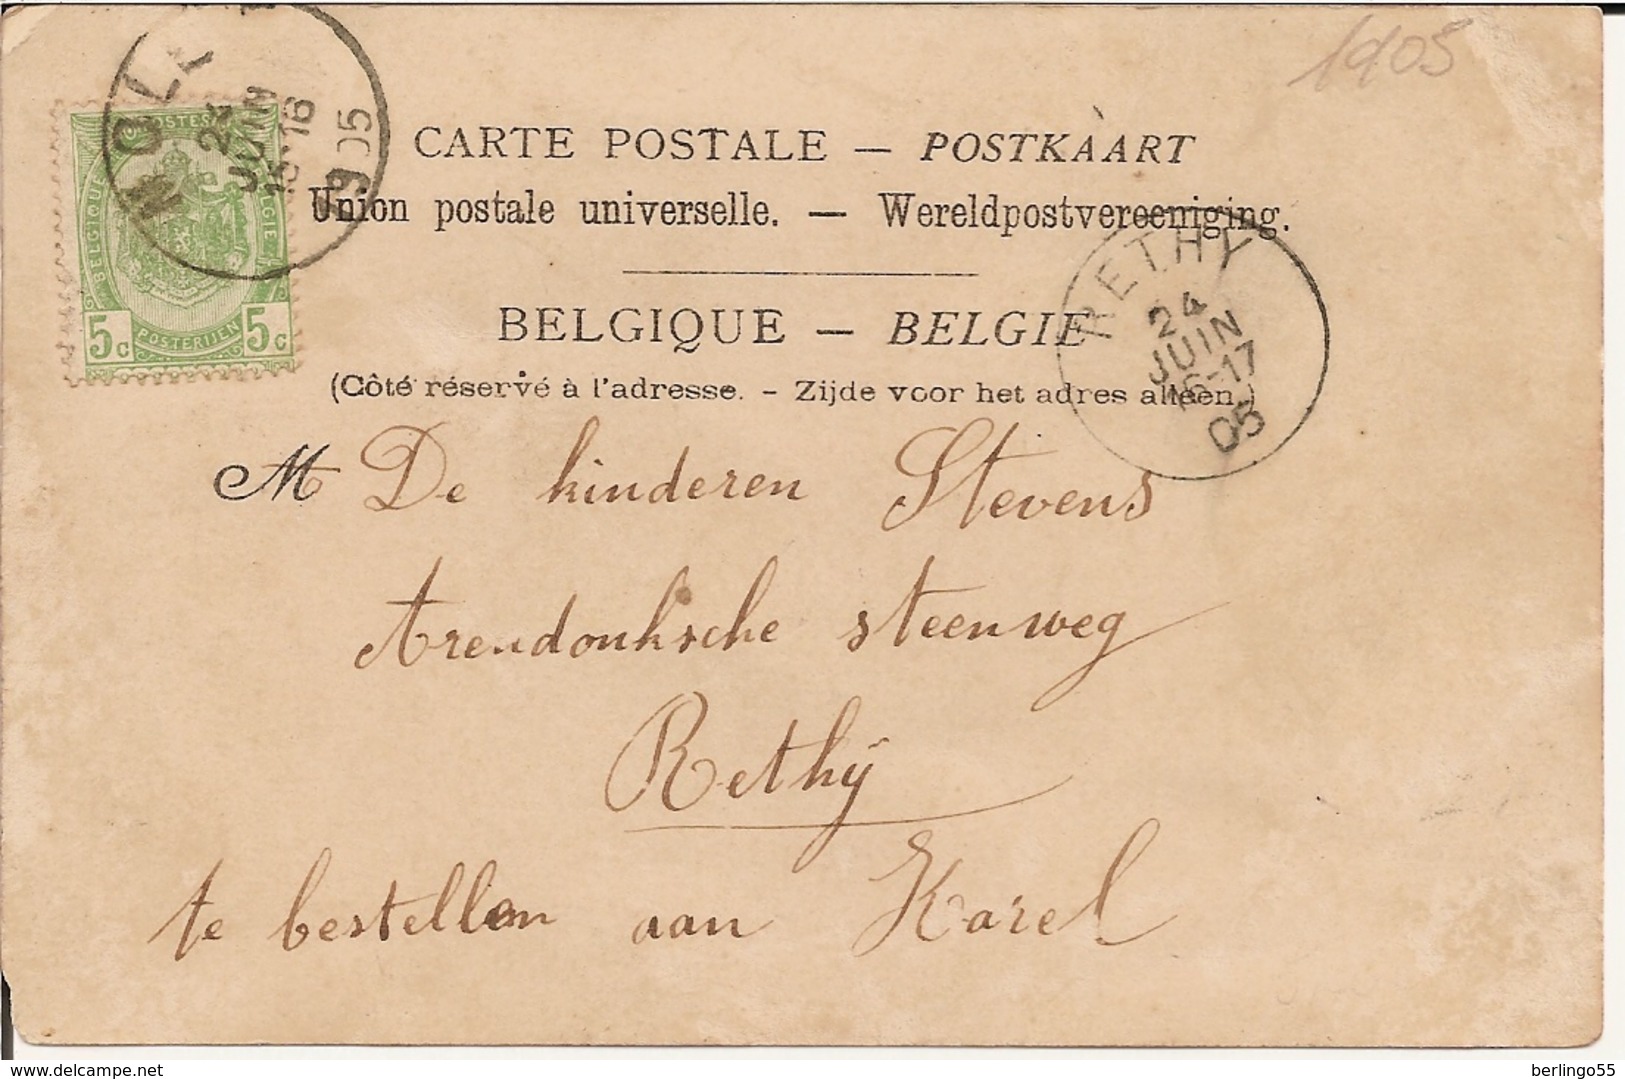 1905
MOLL
24
JUIN
15-16
1905
POSTES
BELGIQUE
BELGIE
5c POSTERIJEN 5c
CARTE POSTALE — POSTKAART
Union postale universelle. — Wereldpostvereeniging.
BELGIQUE — BELGIE
(Côté réservé à l'adresse. - Zijde voor het adres alleen.)
RETHY
24
JUIN
16-17
05
M De kinderen Stevens
Arendonksche steenweg
Rethÿ
te bestellen aan Karel
berlingo55